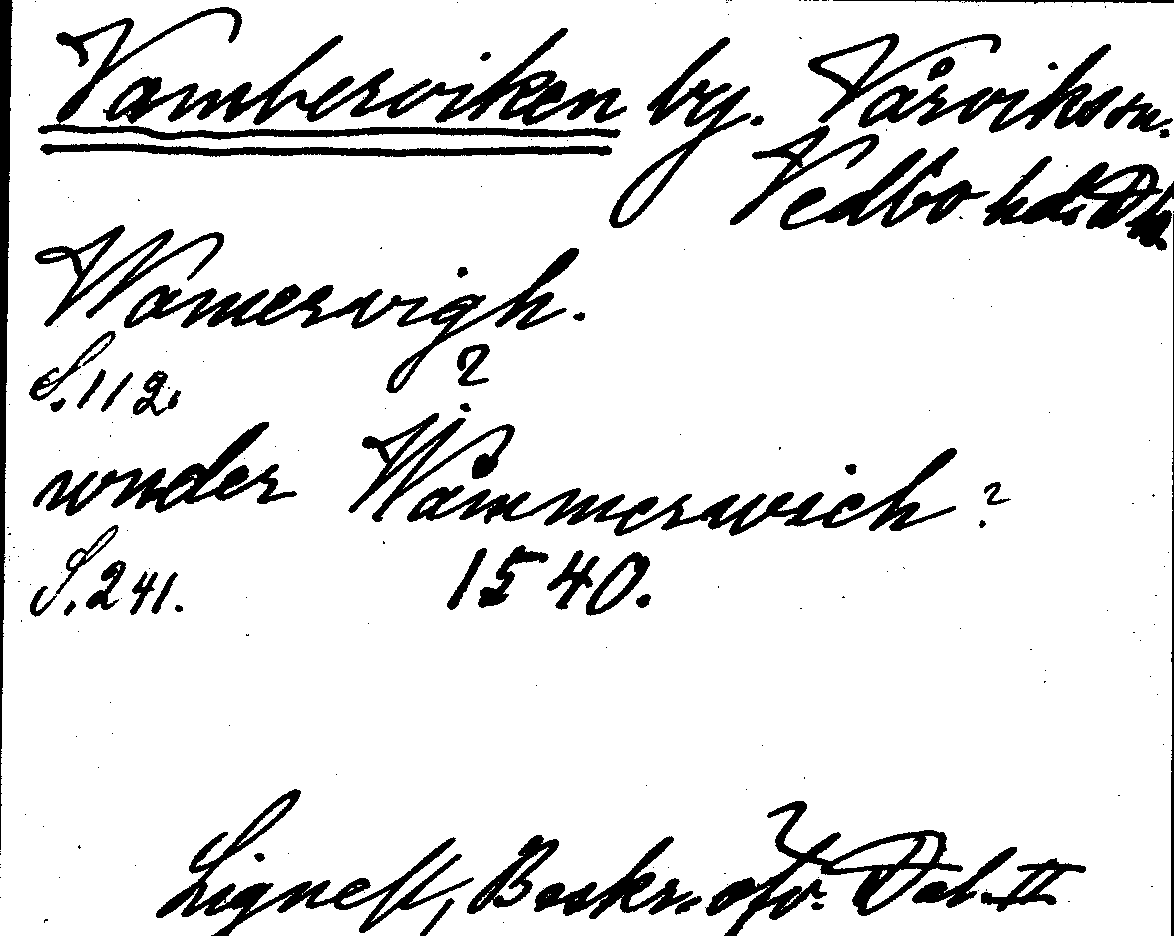 Vamberviken by. Vårviks sn.
Vedbo hd. Dal.
Wamervigh.
S. 112. ?
wnder Wåmmerwich ?
S. 241. 1540.
Lignell, Beskr. öfv. Dal. II